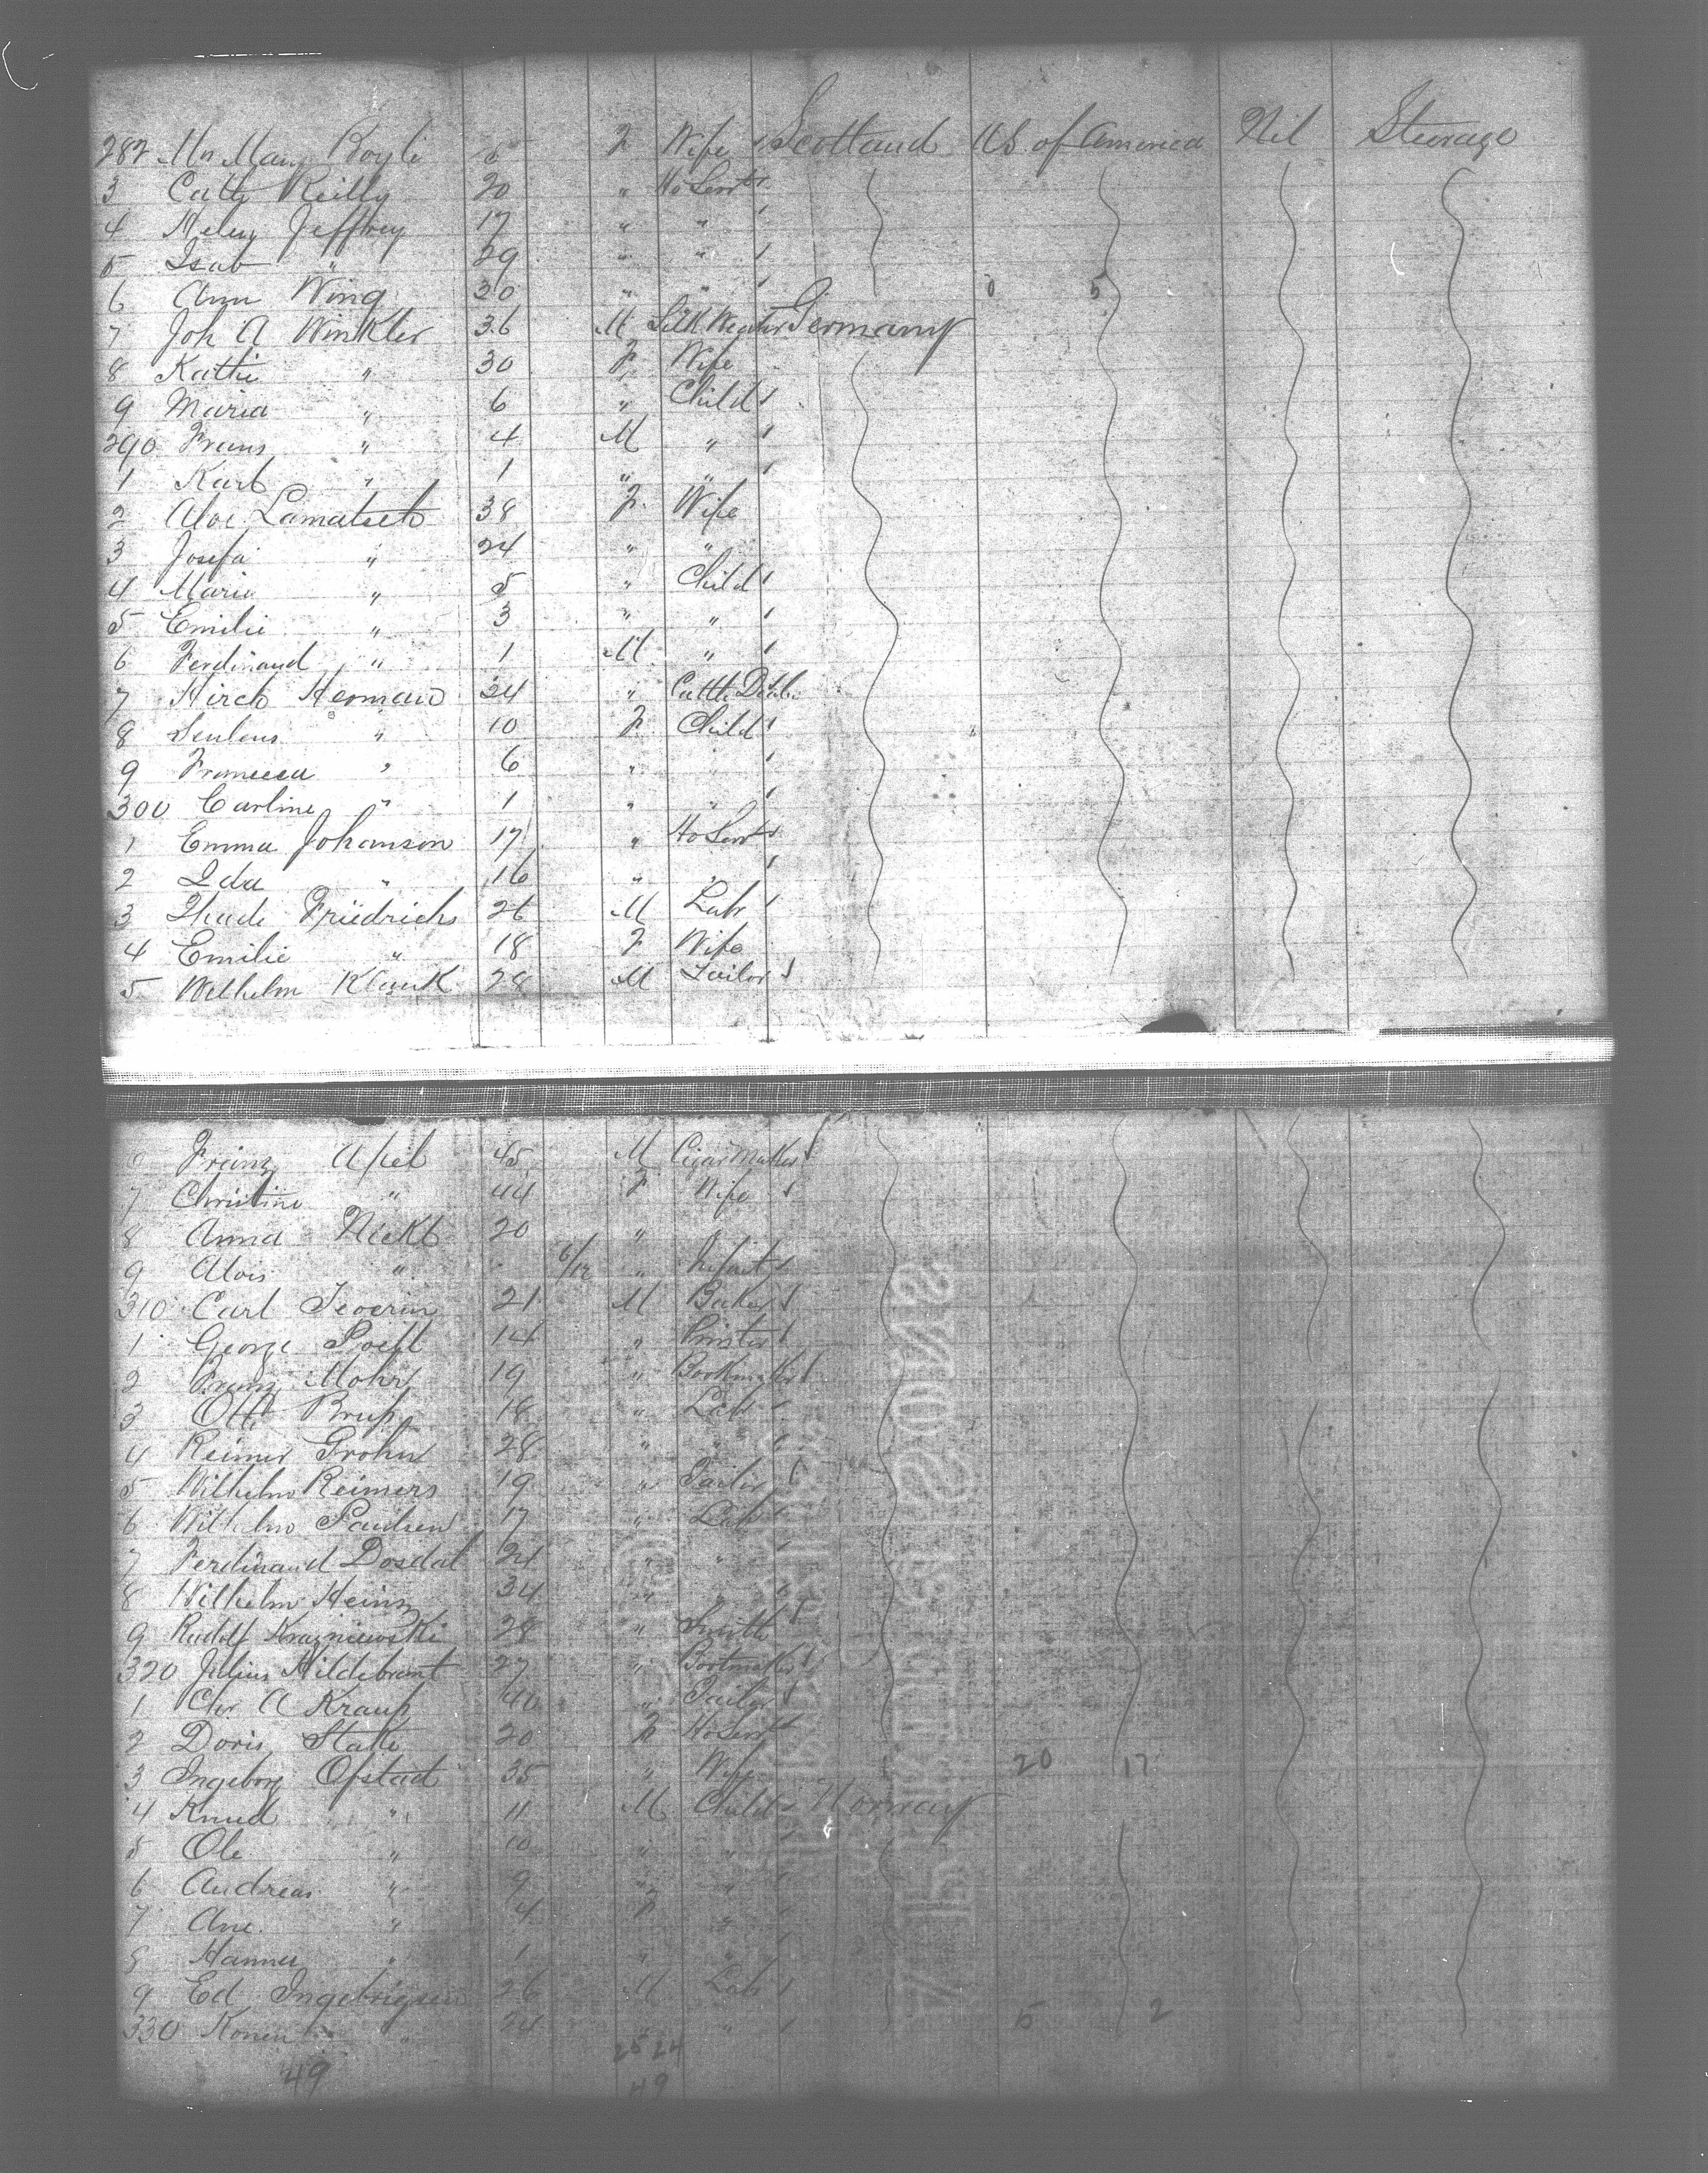 282 Mrs Mary Boyle F Wife Scotland U.S. of America Nil Steerage
3 Cath Reilly 20 " Ho Servt
4 Helen Jeffrey 17 " "
5 Isab " 29 " "
6 Ann Wing 30 " " 0 5
7 Joh A Winkler 36 M Silk Weaver Germany
8 Kathi " 30 F Wife
9 Maria " 6 " Child
290 Frans " 4 M "
1 Karl " 1 " "
2 Aloe Lamatsch 38 F Wife
3 Josefa " 24 " "
4 Marie " 5 " Child
5 Emilie " 3 " "
6 Ferdinand " 1 M "
7 Hirch Herman 24 " Cattle Dealer
8 " 10 F Child
9 " 6 " "
300 Carline " 1 " "
1 Emma Johanson 17 " Ho Servt
2 Ida " 16 " "
3 Thade Friedrichs 26 M Labr
4 Emilie " 18 F Wife
5 Wilhelm Klauk 28 M Tailor
6 Franz Apel 45 M Cigar Maker
7 Christine " 44 F Wife
8 Anna Nickl 20 " "
9 Alois " 6/12 " Infant
310 Carl Severin 21 M Baker
1 George 14 " Printer
2 Franz Mohr 19 " Bookmaker
3 Otto 18 " Labr
4 Reimer Grohn 28 " "
5 Wilhelm Reimers 19 " Tailor
6 Wilhelm Paulsen 17 " Labr
7 Ferdinand Dosdal 24 " "
8 Wilhelm Heinz 34 " "
9 Rudolf Krazniewski 28 " Smith
320 Julius Hildebrant 27 " Bootmaker
1 Chr A Kraup 40 " Tailor
2 Doris Stake 20 F Ho Servt
3 Ingeborg Ofstad 35 " Wife 20 17
4 Knud " 11 M Child Norway
5 Ole " 10 " "
6 Andreas " 9 " "
7 Ane " 4 F "
8 Hanna " 1 " "
9 Ed Ingebrigsen 26 M Labr
330 " 24 " " 5 2
25 24
49 49